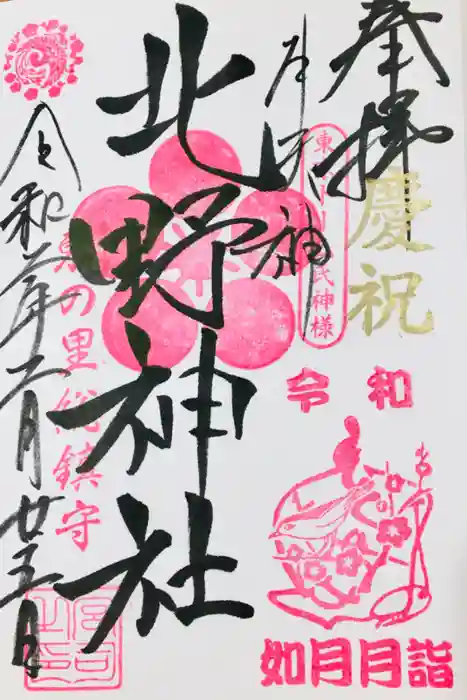 奉拝
慶祝
天神
氏神様
北野神社
の里総鎮守
令和二年二月廿五日
令和
如月月詣